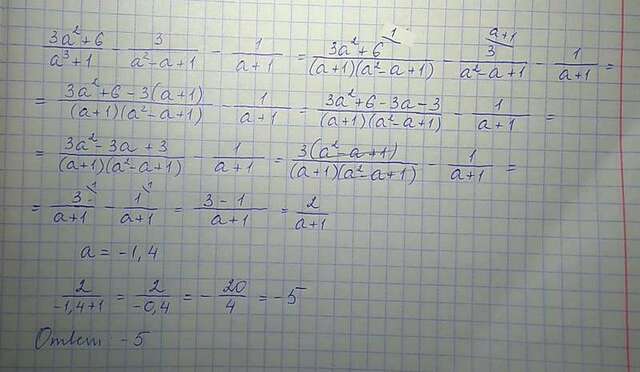 (3a²+6)/(a³+1) - 3/(a²-a+1) - 1/(a+1) = (3a²+6)^1/((a+1)(a²-a+1)) - 3^(a+1)/(a²-a+1) - 1/(a+1) =
= (3a²+6-3(a+1))/((a+1)(a²-a+1)) - 1/(a+1) = (3a²+6-3a-3)/((a+1)(a²-a+1)) - 1/(a+1) =
= (3a²-3a+3)/((a+1)(a²-a+1)) - 1/(a+1) = 3(a²-a+1)/((a+1)(a²-a+1)) - 1/(a+1) =
= 3^1/(a+1) - 1^1/(a+1) = (3-1)/(a+1) = 2/(a+1)
a = -1,4
2/(-1,4+1) = 2/(-0,4) = -20/4 = -5
Ответ: -5